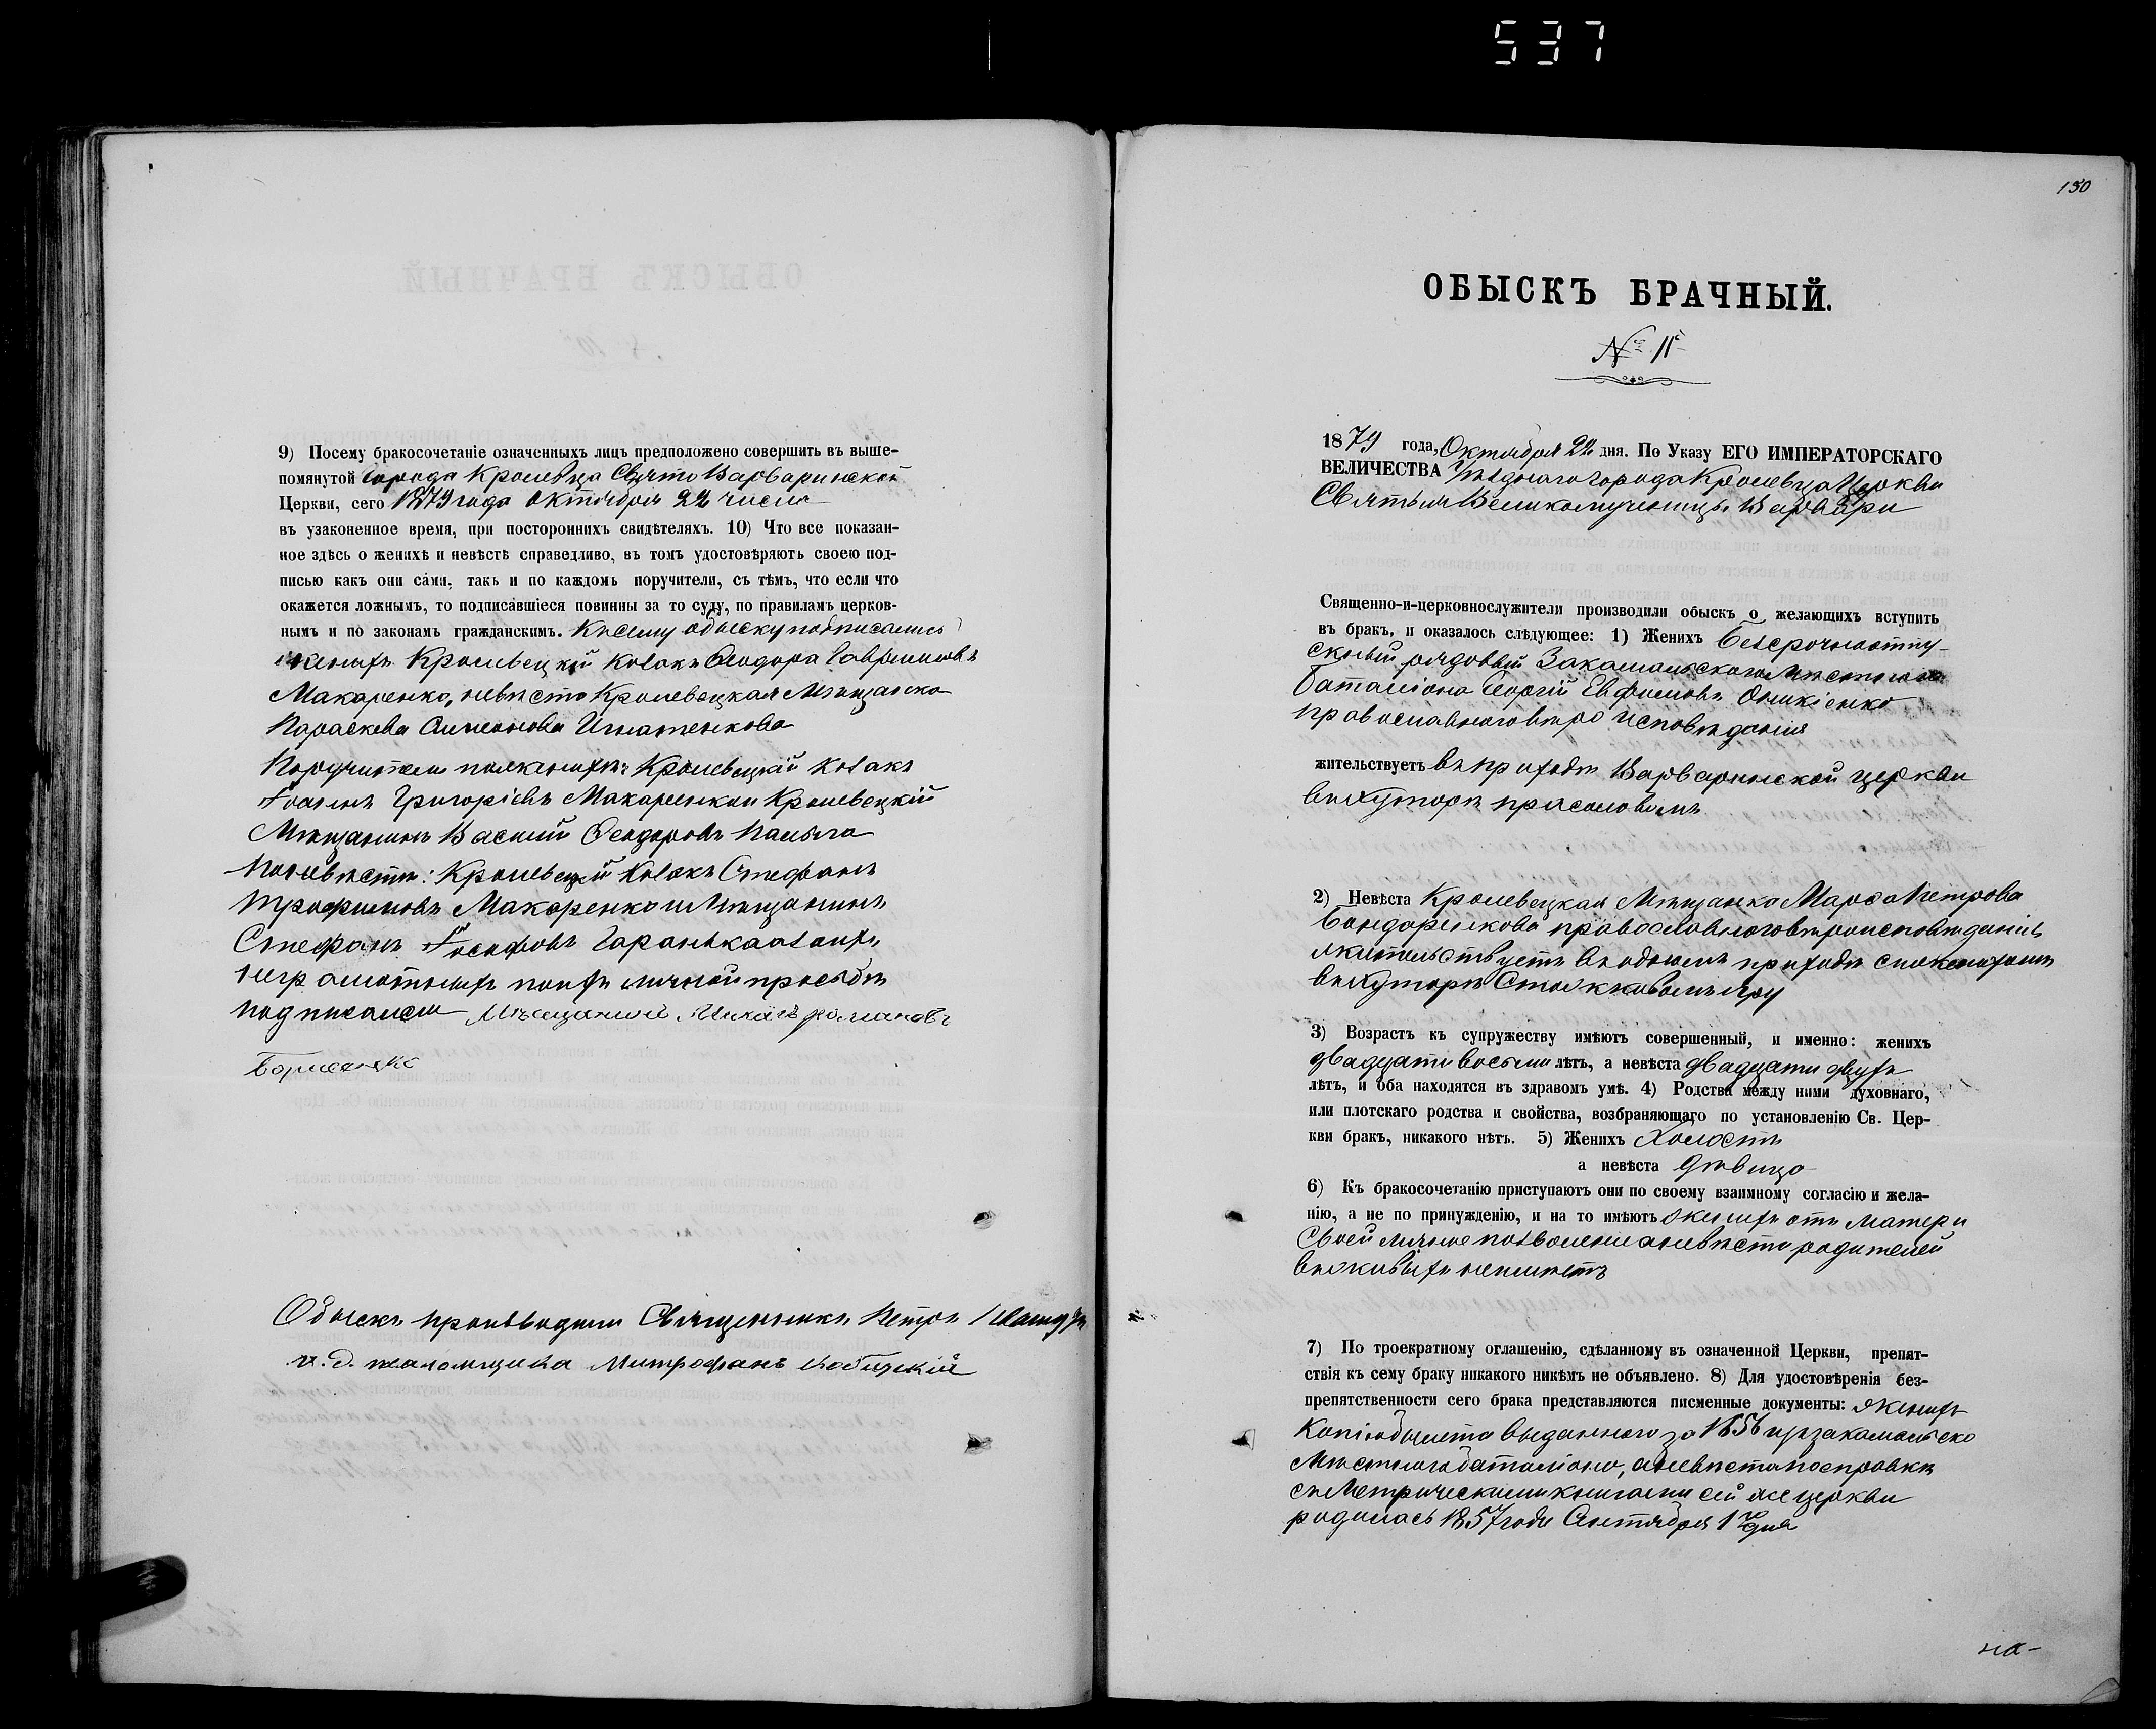 537
9) Посему бракосочетаніе означенныхъ лицъ предположено совершить въ выше-
помянутой города Кролевца Свято Варваринской
Церкви, сего 1879 года Октября 22 числа
въ узаконенное время, при постороннихъ свидѣтеляхъ. 10) Что все показан-
ное здѣсь о женихѣ и невѣстѣ справедливо, въ томъ удостовѣряютъ своею под-
писью какъ они сами, такъ и по каждомъ поручители, съ тѣмъ, что если что
окажется ложнымъ, то подписавшіеся повинны за то суду, по правиламъ церков-
нымъ и по законамъ гражданскимъ. Къ сему обыску подписались
женихъ Кролевецкій козакъ Ѳеодоръ Гавриловъ
Макаренко, невѣста Кролевецкая Мѣщанка
Параскева Симеонова Игнатенкова
Поручители по женихѣ: Кролевецкій козакъ
Іоаннъ Григоріевъ Макаренко и Кролевецкій
Мѣщанинъ Василій Ѳеодоровъ
По невѣстѣ: Кролевецкій козакъ Стефанъ
Трофимовъ Макаренко и Мѣщанинъ
Стефанъ Іосифовъ Гаранька а за нихъ
неграмотныхъ по ихъ личной просьбѣ
подписался Мѣщанин Романовъ
Борисенко
Обыскъ производили Священникъ Петръ
и. д. псаломщика Митрофанъ
150
ОБЫСКЪ БРАЧНЫЙ.
№ 11
1879 года, Октября 22 дня. По Указу ЕГО ИМПЕРАТОРСКАГО
ВЕЛИЧЕСТВА Уѣзднаго города Кролевца Церкви
Святыя Великомученицы Варвары
Священно-и-церковнослужители производили обыскъ о желающихъ вступить
въ бракъ, и оказалось слѣдующее: 1) Женихъ безсрочноотпу-
скный рядовый Закатальскаго Мѣстнаго
баталіона Георгій Евфимовъ Оникіенко
православнаго вѣроисповѣданія
жительствуетъ въ приходѣ Варваринской церкви
въ хуторѣ прасоловомъ
2) Невѣста Кролевецкая Мѣщанка Марѳа Петрова
Бондаренкова православнаго вѣроисповѣданія
жительствуетъ въ одномъ приходѣ съ женихомъ
въ хуторѣ Яру
3) Возрастъ къ супружеству имѣютъ совершенный, и именно: женихъ
двадцати восьми лѣтъ, а невѣста двадцати двухъ
лѣтъ, и оба находятся въ здравомъ умѣ. 4) Родства между ними духовнаго,
или плотскаго родства и свойства, возбраняющаго по установленію Св. Цер-
кви бракъ, никакого нѣтъ. 5) Женихъ Холостъ
а невѣста дѣвица
6) Къ бракосочетанію приступаютъ они по своему взаимному согласію и жела-
нію, а не по принужденію, и на то имѣютъ женихъ отъ матери
своей личное позволеніе а невѣста родителей
въ живыхъ неимѣетъ
7) По троекратному оглашенію, сдѣланному въ означенной Церкви, препят-
ствія къ сему браку никакого никѣмъ не объявлено. 8) Для удостовѣренія без-
препятственности сего брака представляются писменные документы: женихъ
Копію билета выданнаго за
Мѣстнаго баталіона, а невѣста по справкѣ
съ Метрическими книгами сей же церкви
родилась 1857 года Сентября 1го дня
на-